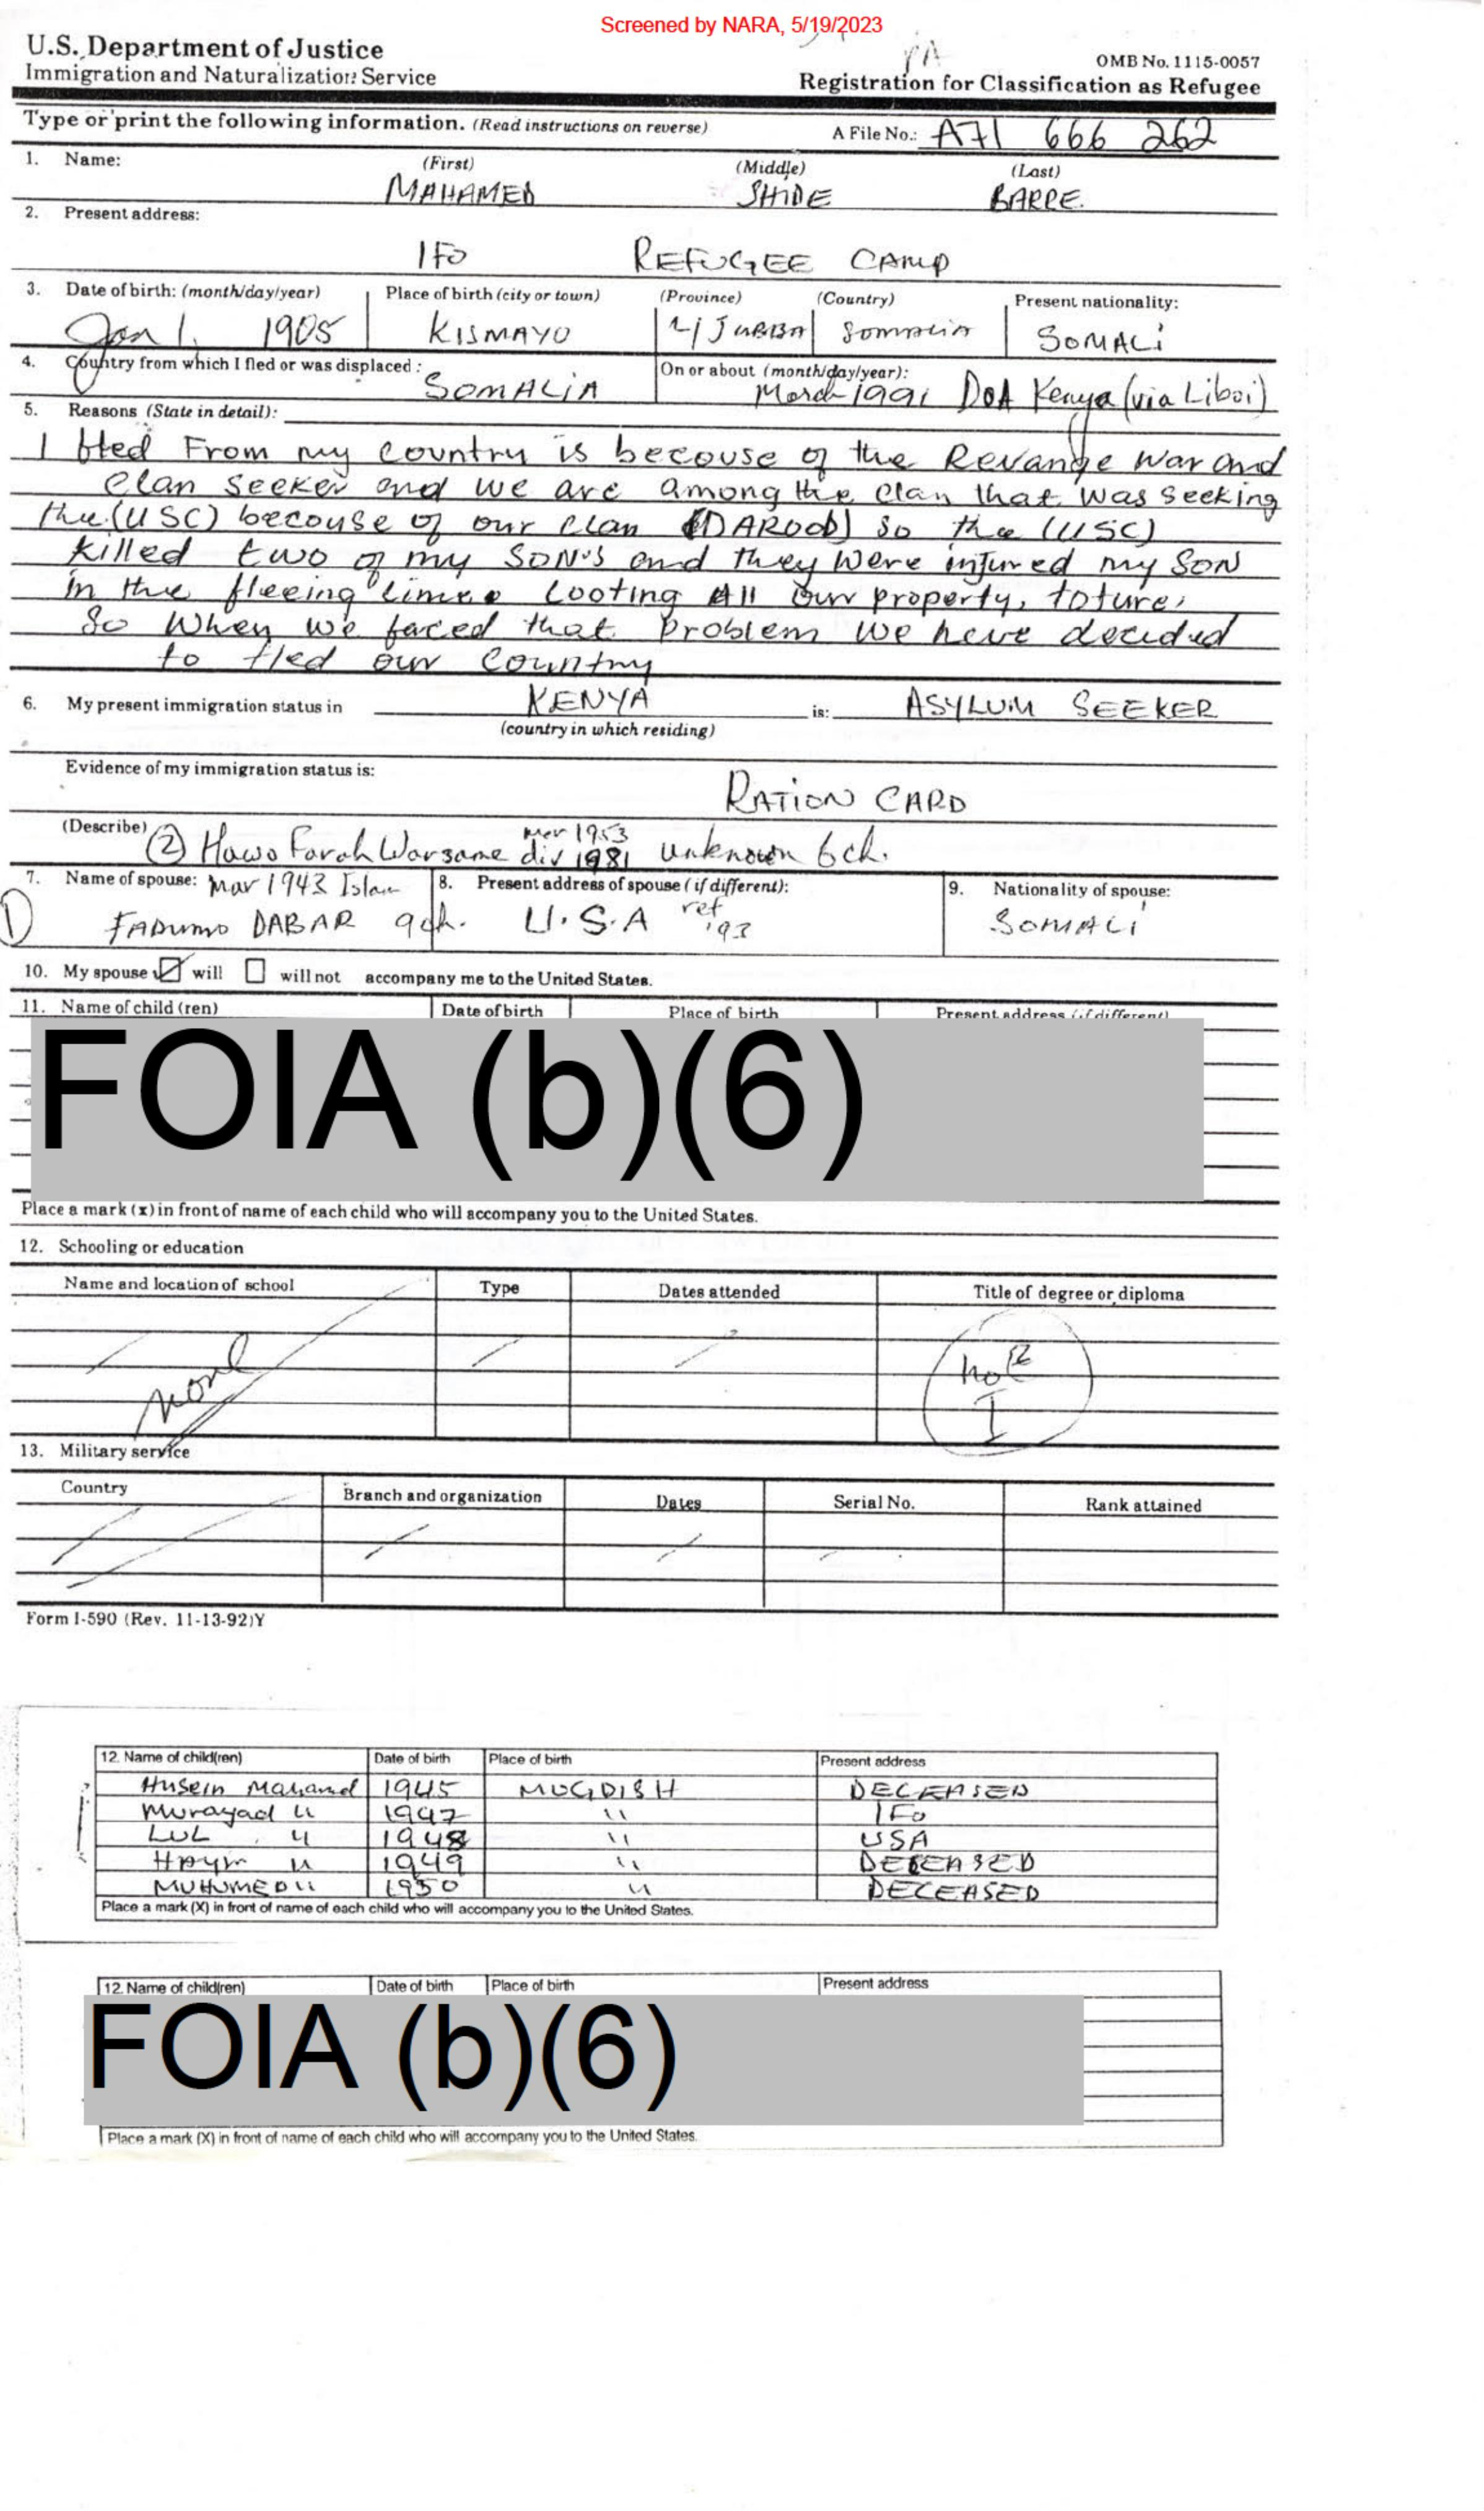 Screened by NARA, 5/19/2023
U.S. Department of Justice
Immigration and Naturalization Service
OMB No. 1115-0057
Registration for Classification as Refugee
Type or print the following information. (Read instructions on reverse)
A File No.: A71 666 262
1. Name: (First) (Middle) (Last)
MAHAMED SHIDE BARRE
2. Present address:
IFO REFUGEE CAMP
3. Date of birth: (month/day/year) Place of birth (city or town) (Province) (Country) Present nationality:
Jan 1, 1905 KISMAYO L/JUBBA Somalia SOMALI
4. Country from which I fled or was displaced: On or about (month/day/year):
SOMALIA March 1991 DOA Kenya (via Liboi)
5. Reasons (State in detail):
I fled From my country is becouse of the Revange war and
clan seeker and we are among the clan that was seeking
the (USC) becouse of our clan (DAROOD) so the (USC)
killed two of my SON'S and they were injured my SON
in the fleeing time. Looting All our property, toture,
So when we faced that problem we have decided
to fled our country
6. My present immigration status in KENYA is: ASYLUM SEEKER
(country in which residing)
Evidence of my immigration status is:
RATION CARD
(Describe) ② Hawo Farah Warsame mar 1953 div 1981 unknown 6ch.
7. Name of spouse: Mar 1943 8. Present address of spouse (if different): 9. Nationality of spouse:
① FADUMO DABAR 9ch. U.S.A ref '93 SOMALI
10. My spouse ☑ will ☐ will not accompany me to the United States.
11. Name of child (ren) Date of birth Place of birth Present address (if different)
FOIA (b)(6)
Place a mark (x) in front of name of each child who will accompany you to the United States.
12. Schooling or education
Name and location of school Type Dates attended Title of degree or diploma
none
13. Military service
Country Branch and organization Dates Serial No. Rank attained
Form I-590 (Rev. 11-13-92)Y
12. Name of child(ren) Date of birth Place of birth Present address
Husein Mahamd 1945 MUGDISH DECEASED
Murayad " 1947 " IFO
LUL " 1948 " USA
" 1949 " DECEASED
MUHUMED " 1950 " DECEASED
Place a mark (X) in front of name of each child who will accompany you to the United States.
12. Name of child(ren) Date of birth Place of birth Present address
FOIA (b)(6)
Place a mark (X) in front of name of each child who will accompany you to the United States.